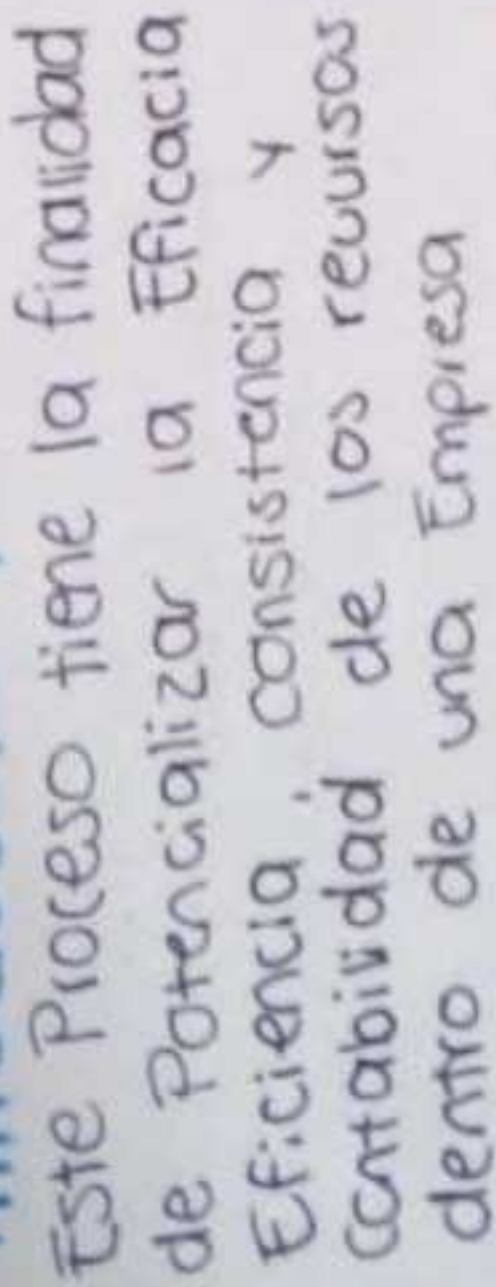 Este Proceso tiene la finalidad
de Potencializar la Eficacia
Eficiencia, consistencia y
contabilidad de los recursos
dentro de una Empresa